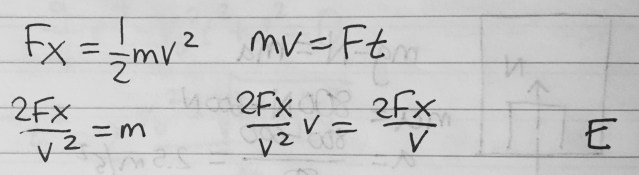 Fx = 1/2 mv² mv = Ft
2Fx/v² = m 2Fx/v² v = 2Fx/v E